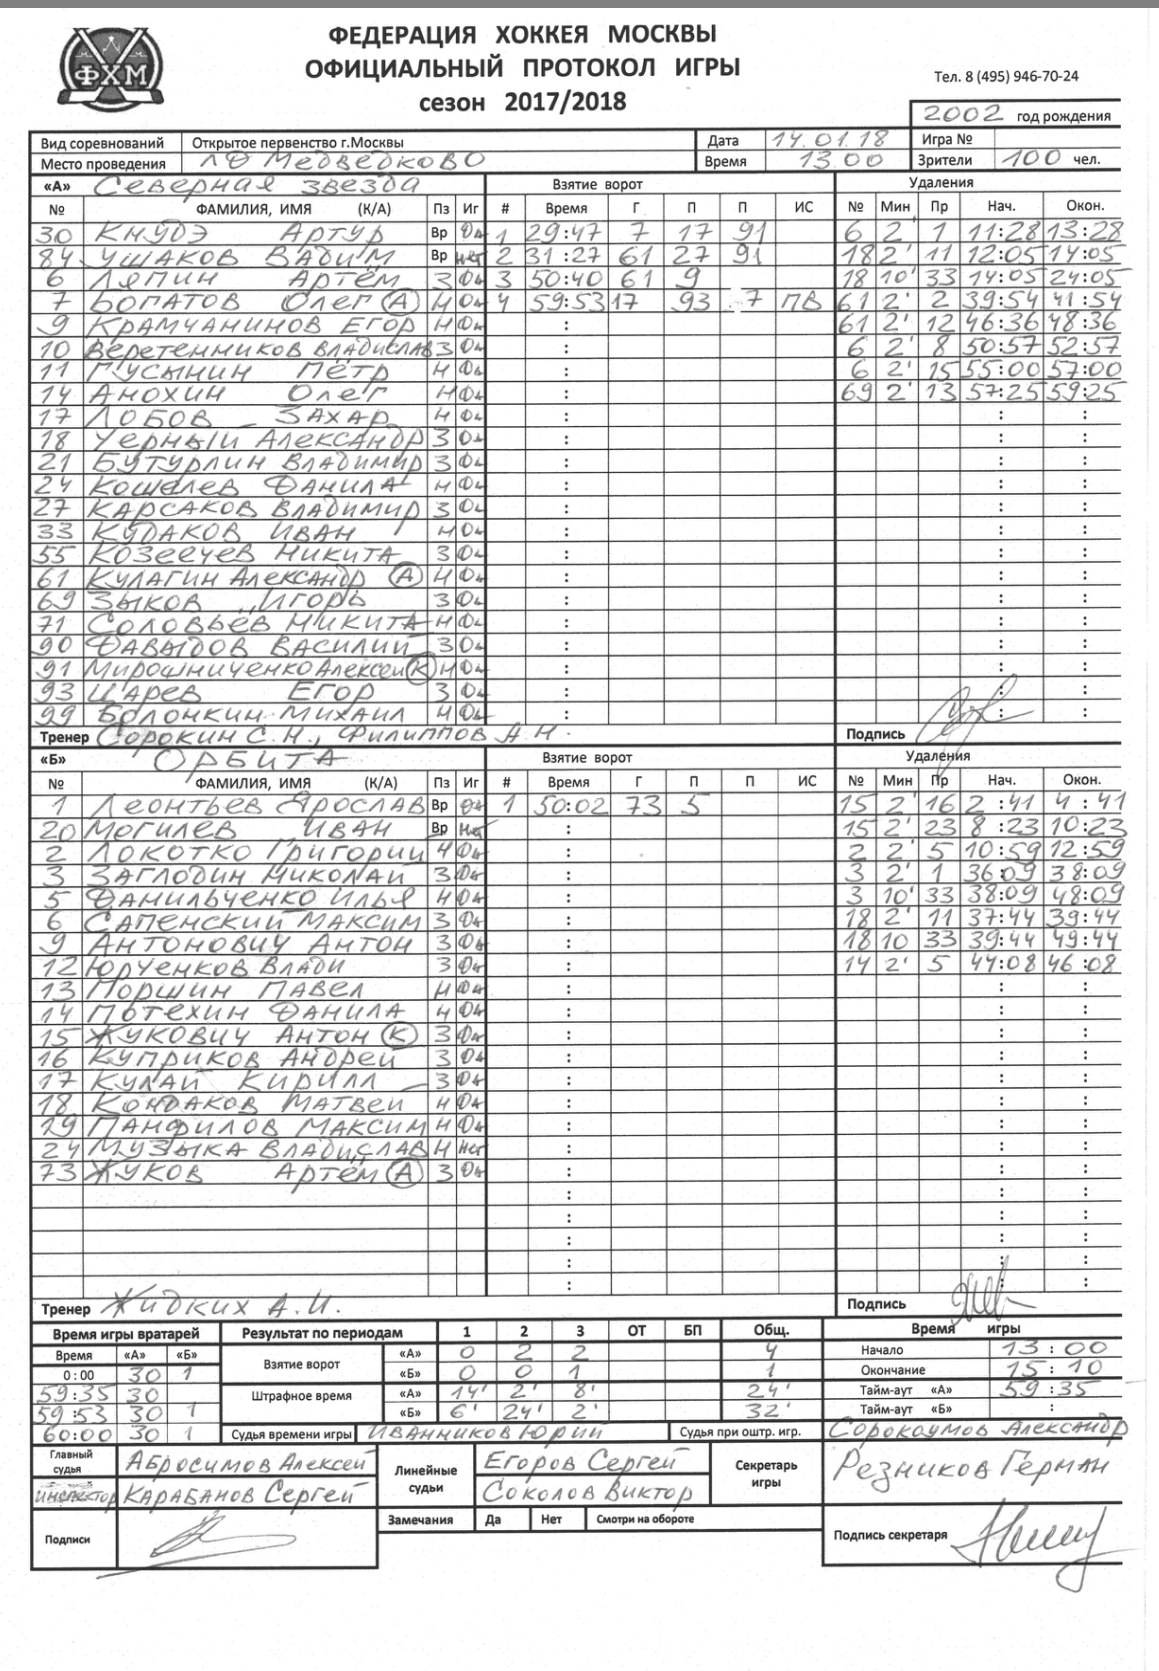 ФЕДЕРАЦИЯ ХОККЕЯ МОСКВЫ
ОФИЦИАЛЬНЫЙ ПРОТОКОЛ ИГРЫ
сезон 2017/2018
ФХМ
Тел. 8 (495) 946-70-24
2002 год рождения
Вид соревнований Открытое первенство г.Москвы Дата 14.01.18 Игра №
Место проведения ЛД Медведково Время 13.00 Зрители 100 чел.
«А» Северная звезда Взятие ворот Удаления
№ ФАМИЛИЯ, ИМЯ (К/А) Пз Иг # Время Г П П ИС № Мин Пр Нач. Окон.
30 Кнудэ Артур Вр Да 1 29:47 7 17 91 6 2 1 11:28 13:28
84 Ушаков Вадим Вр нет 2 31:27 61 27 91 18 2' 11 12:05 14:05
6 Ляпин Артём З Да 3 50:40 61 9 18 10' 33 14:05 24:05
7 Богатов Олег (А) Н Да 4 59:53 17 93 7 ПВ 61 2' 2 39:54 41:54
9 Крамчанинов Егор Н Да : 61 2' 12 46:36 48:36
10 Веретенников Владислав З Да : 6 2' 8 50:57 52:57
11 Гусынин Пётр Н Да : 6 2' 15 55:00 57:00
14 Анохин Олег Н Да : 69 2' 13 57:25 59:25
17 Лобов Захар Н Да : : :
18 Черный Александр З Да : : :
21 Бутурлин Владимир З Да : : :
24 Кошелев Данила Н Да : : :
27 Карсаков Владимир З Да : : :
33 Кудаков Иван Н Да : : :
55 Козеечев Никита З Да : : :
61 Кулагин Александр (А) Н Да : : :
69 Зыков Игорь З Да : : :
71 Соловьёв Никита Н Да : : :
90 Давыдов Василий З Да : : :
91 Мирошниченко Алексей (К) Н Да : : :
93 Царев Егор З Да : : :
99 Болонкин Михаил Н Да : : :
Тренер Сорокин С.Н., Филиппов А.Н. Подпись
«Б» ОРБИТА Взятие ворот Удаления
№ ФАМИЛИЯ, ИМЯ (К/А) Пз Иг # Время Г П П ИС № Мин Пр Нач. Окон.
1 Леонтьев Ярослав Вр Да 1 50:02 73 5 15 2' 16 2:41 4:41
20 Могилев Иван Вр Нет : 15 2' 23 8:23 10:23
2 Локотко Григорий Н Да : 2 2' 5 10:59 12:59
3 Заглодин Николай З Да : 3 2' 1 36:09 38:09
5 Данильченко Илья Н Да : 3 10' 33 38:09 48:09
6 Сапенский Максим З Да : 18 2' 11 37:44 39:44
9 Антонович Антон З Да : 18 10 33 39:44 49:44
12 Юрченков Влади З Да : 14 2' 5 44:08 46:08
13 Поршин Павел Н Да : : :
14 Потехин Данила Н Да : : :
15 Жукович Антон (К) З Да : : :
16 Куприков Андрей З Да : : :
17 Кулай Кирилл З Да : : :
18 Кондаков Матвей Н Да : : :
19 Панфилов Максим Н Да : : :
24 Музыка Владислав Н Нет : : :
73 Жуков Артём (А) З Да : : :
: : :
: : :
: : :
: : :
: : :
Тренер Жидких А.И. Подпись
Время игры вратарей Результат по периодам 1 2 3 ОТ БП Общ. Время игры
Время «А» «Б» Взятие ворот «А» 0 2 2 4 Начало 13:00
0:00 30 1 «Б» 0 0 1 1 Окончание 15:10
59:35 30 Штрафное время «А» 14' 2' 8' 24' Тайм-аут «А» 59:35
59:53 30 1 «Б» 6' 24' 2' 32' Тайм-аут «Б» :
60:00 30 1 Судья времени игры Иванников Юрий Судья при оштр. игр. Сорокоумов Александр
Главный судья Абросимов Алексей Линейные судьи Егоров Сергей Секретарь игры Резников Герман
инспектор Карабанов Сергей Соколов Виктор
Замечания Да Нет Смотри на обороте
Подписи Подпись секретаря